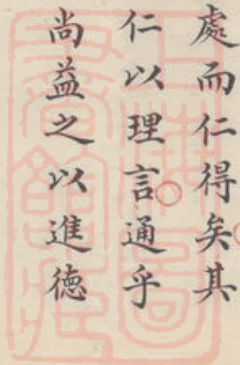 處而仁得矣其
仁以理言通乎
尚益之以進德